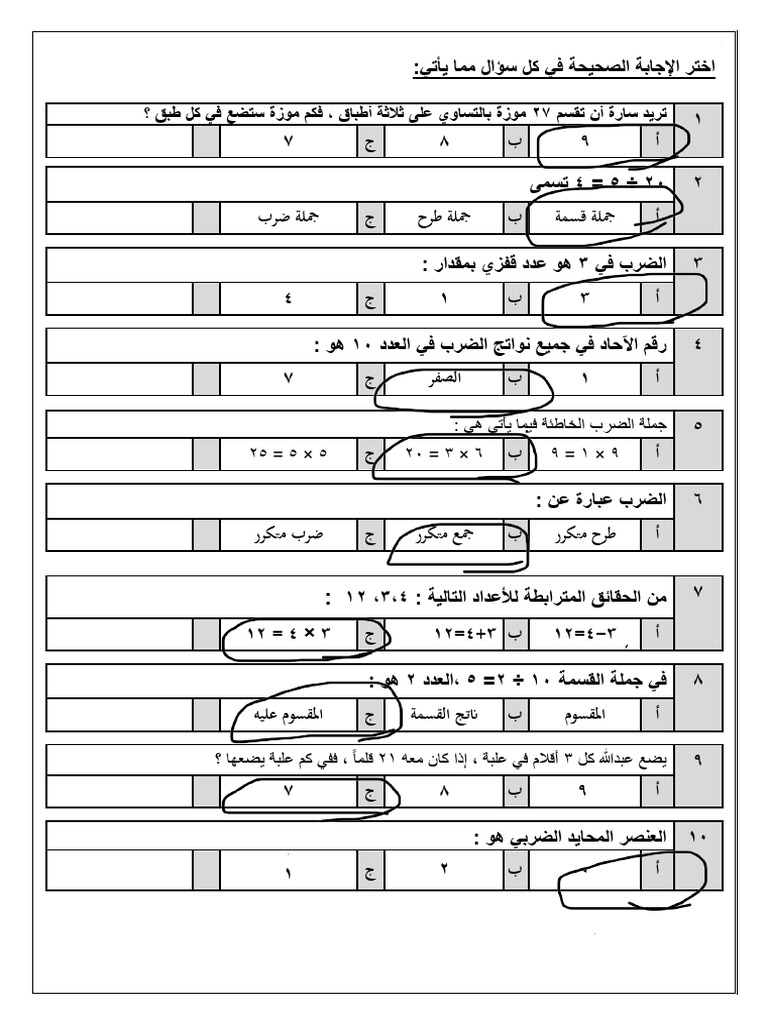 اختر الإجابة الصحيحة في كل سؤال مما يأتي:
١ تريد سارة أن تقسم ٢٧ موزة بالتساوي على ثلاثة أطباق ، فكم موزة ستضع في كل طبق ؟
أ ٩ ب ٨ ج ٧
٢ ٢٠ ÷ ٥ = ٤ تسمى
أ جملة قسمة ب جملة طرح ج جملة ضرب
٣ الضرب في ٣ هو عدد قفزي بمقدار :
أ ٣ ب ١ ج ٤
٤ رقم الآحاد في جميع نواتج الضرب في العدد ١٠ هو :
أ ١ ب الصفر ج ٧
٥ جملة الضرب الخاطئة فيما يأتي هي :
أ ٩ × ١ = ٩ ب ٦ × ٣ = ٢٠ ج ٥ × ٥ = ٢٥
٦ الضرب عبارة عن :
أ طرح متكرر ب جمع متكرر ج ضرب متكرر
٧ من الحقائق المترابطة للأعداد التالية : ٣،٤، ١٢ :
أ ٣−٤=١٢ ب ٣+٤=١٢ ج ٣ × ٤ = ١٢
٨ في جملة القسمة ١٠ ÷ ٢= ٥ ،العدد ٢ هو :
أ المقسوم ب ناتج القسمة ج المقسوم عليه
٩ يضع عبدالله كل ٣ أقلام في علبة ، إذا كان معه ٢١ قلماً ، ففي كم علبة يضعها ؟
أ ٩ ب ٨ ج ٧
١٠ العنصر المحايد الضربي هو :
أ ب ٢ ج ١